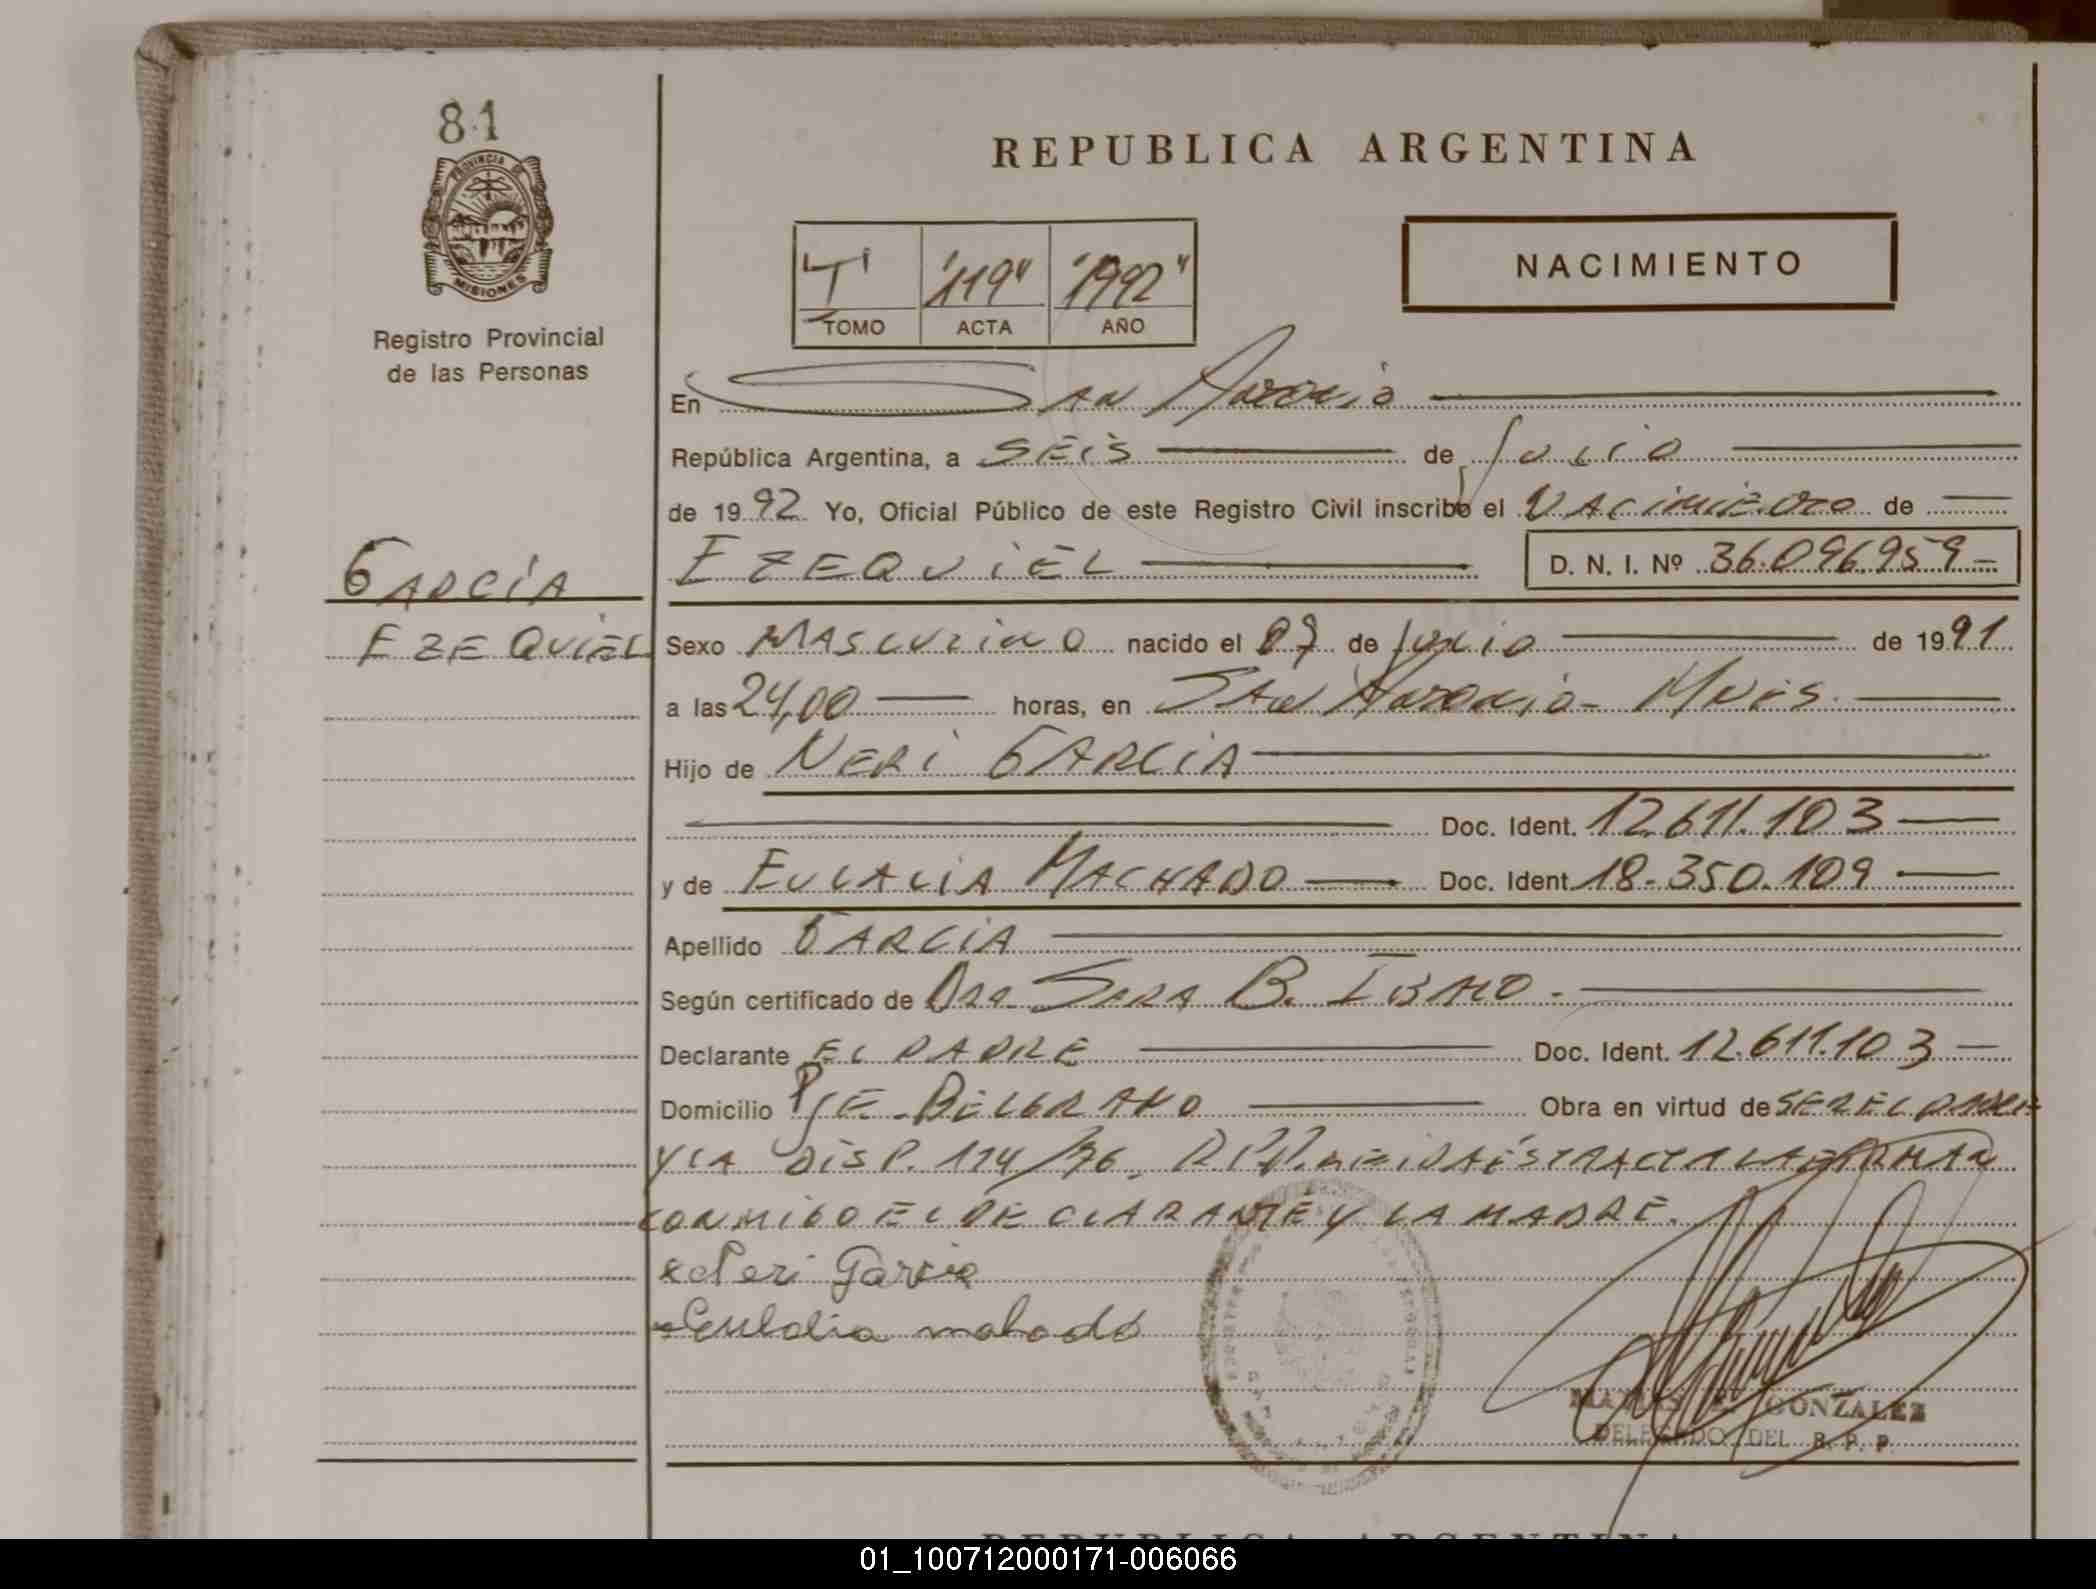 81
PROVINCIA DE
MISIONES
Registro Provincial
de las Personas
GARCÍA
EZEQUIEL
REPUBLICA ARGENTINA
NACIMIENTO
"119" "1992"
TOMO ACTA AÑO
En San Antonio
República Argentina, a SEIS de Julio
de 1992 Yo, Oficial Público de este Registro Civil inscribo el NACIMIENTO de
EZEQUIEL D. N. I. Nº 36.096.959
Sexo MASCULINO nacido el 07 de Julio de 1991
a las 24,00 horas, en San Antonio - Mnes.
Hijo de NERI GARCIA
Doc. Ident. 12.611.103
y de EULALIA MACHADO Doc. Ident 18.350.109
Apellido GARCIA
Según certificado de Dra Sara B.
Declarante EL PADRE Doc. Ident. 12.611.103
Domicilio Pje BELGRANO Obra en virtud de SER EL PADRE
Y LA DISP. 114/76 R.P.P. LEIDA ESTA ACTA LA FIRMAN
CONMIGO EL DECLARANTE Y LA MADRE.
Neri Garcia
Euldia mahado
GONZALEZ
DELEGADO DEL R. P. P.
REPUBLICA ARGENTINA
01_100712000171-006066